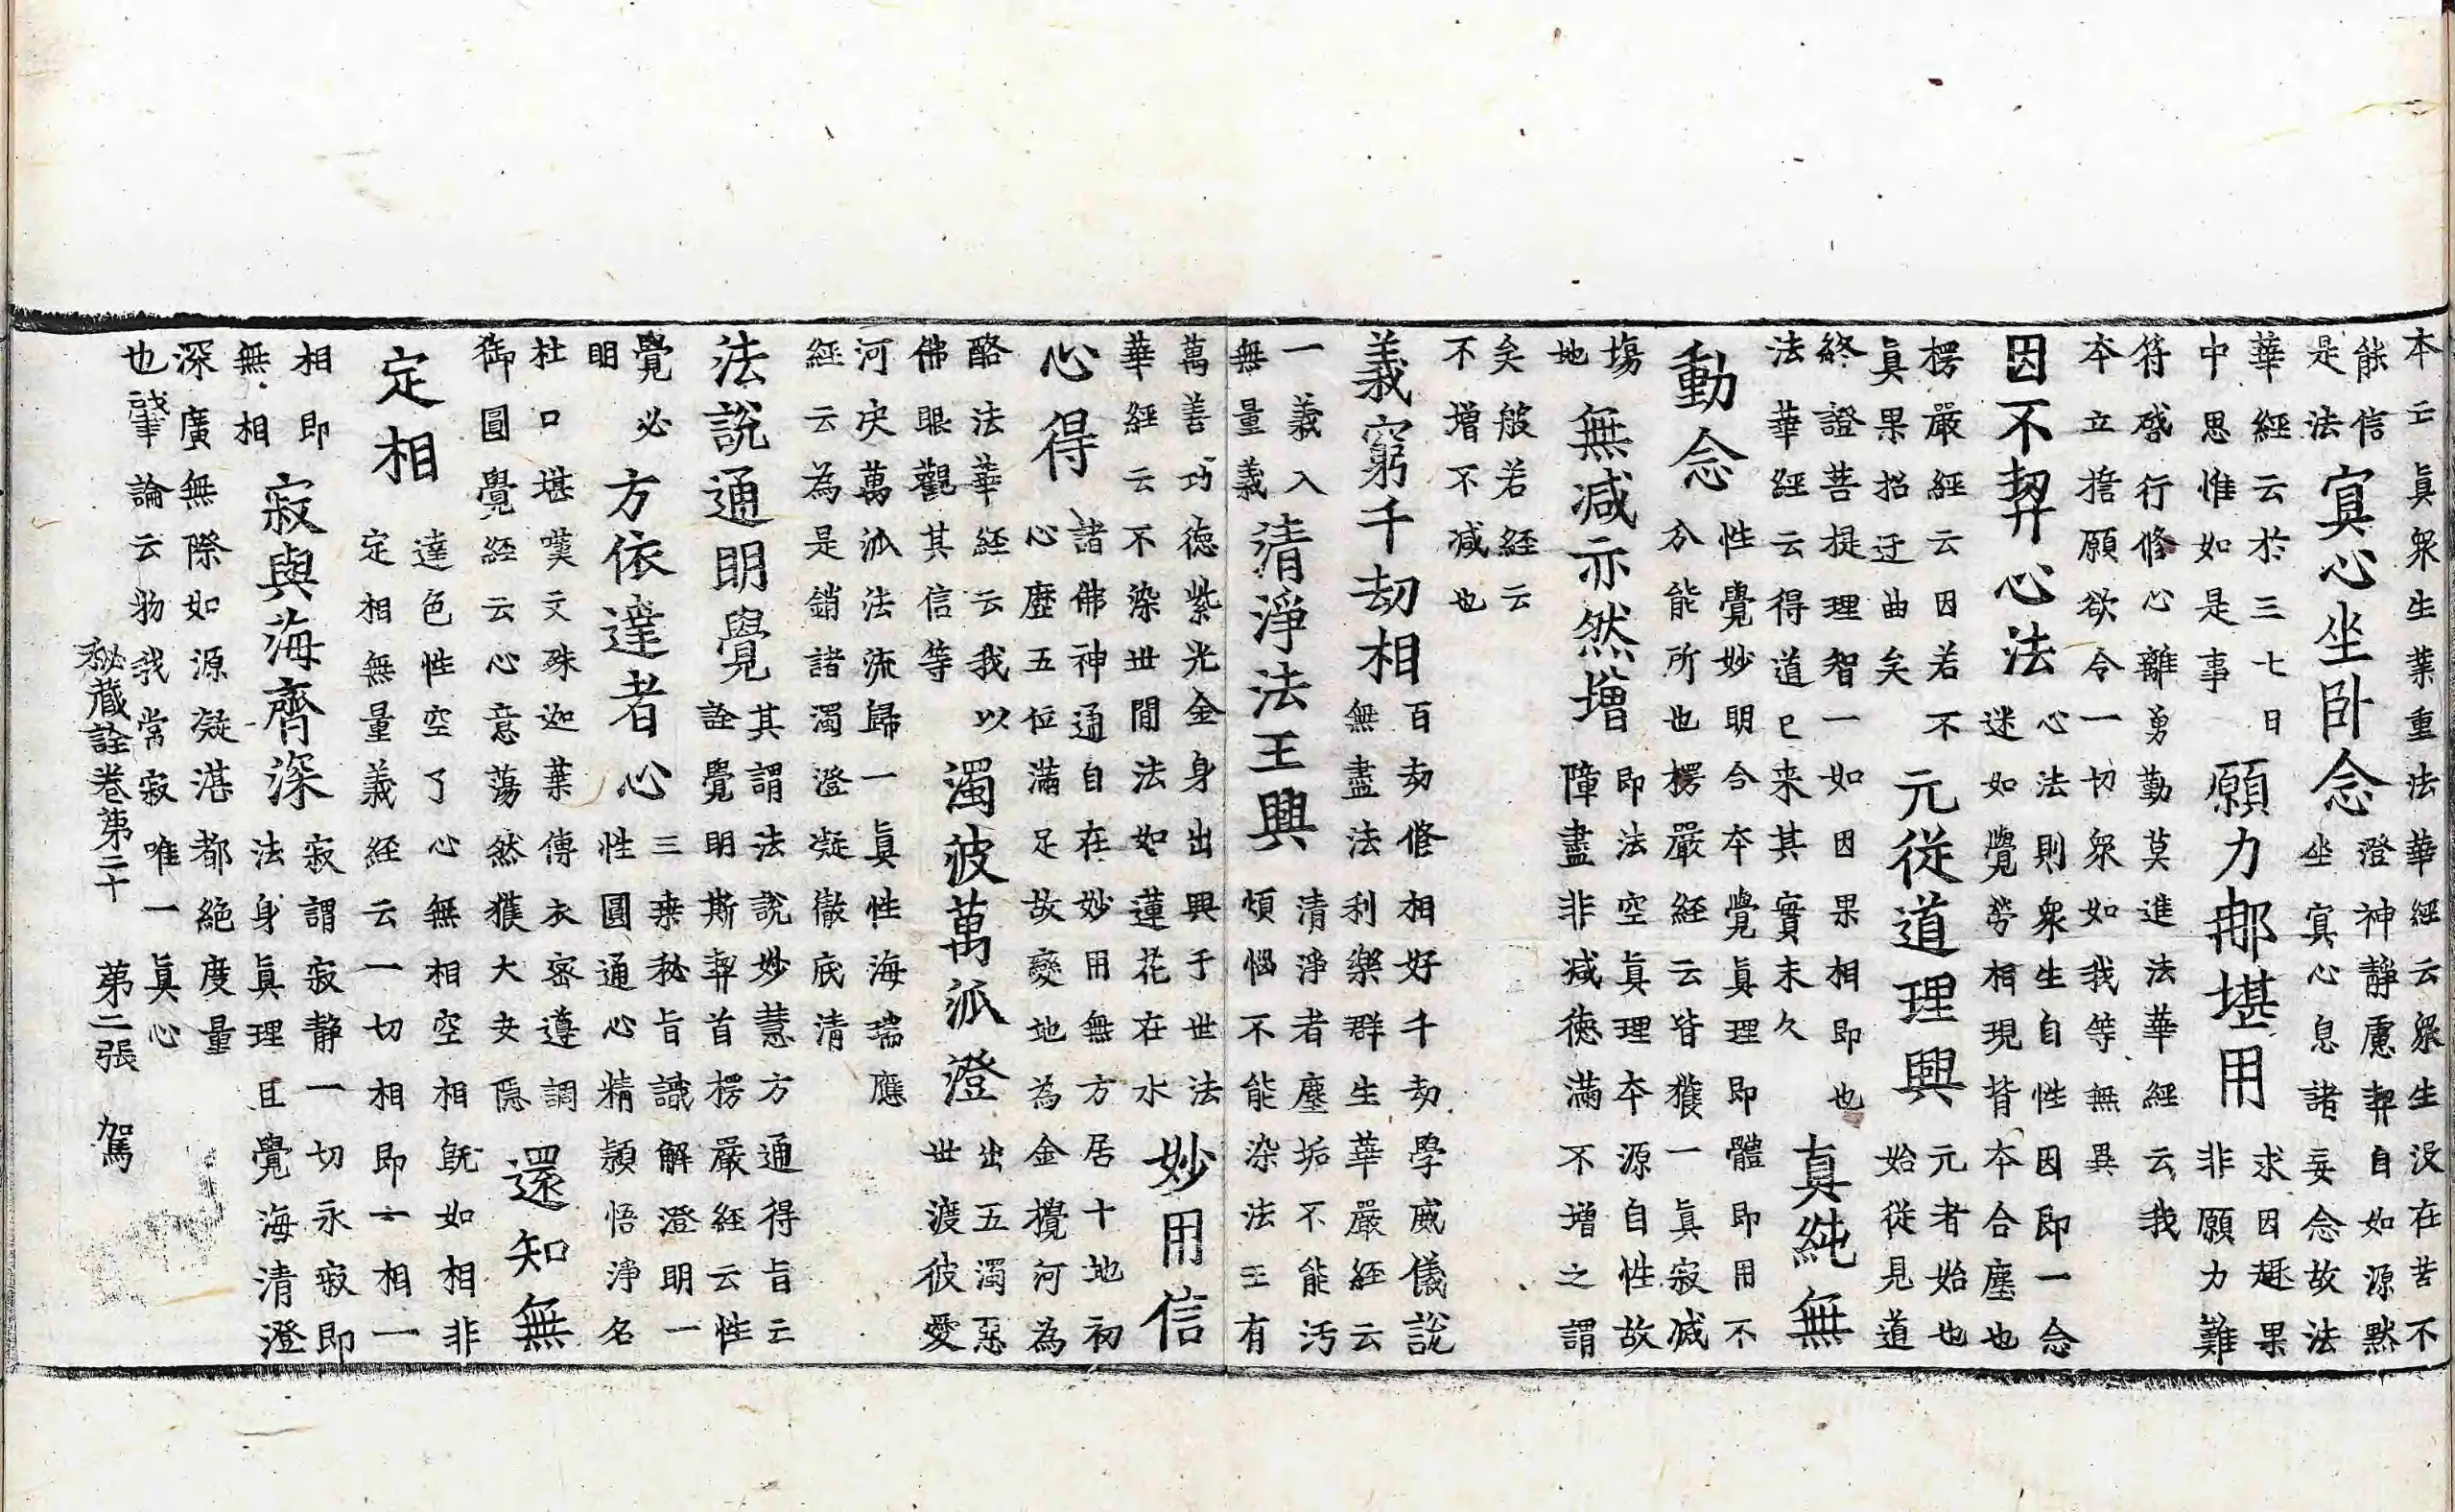 本云眞衆生業重法華經云衆生没在苦不
能信
是法
寘心坐卧念
澄神靜慮契自如源默
坐寘心息諸妄念故法
華經云於三七日
中思惟如是事
願力那堪用
求因趣果
非願力難
符啓行修心離勇勤莫進法華經云我
本立擔願欲令一切衆如我等無異
因不契心法
心法則衆生自性因即一念
迷如覺勞相現皆本合塵也
楞嚴經云因若不
眞果招迂曲矣
元從道理興
元者始也
始從見道
終證菩提理智一如因果相即也
法華經云得道已来其實未久
真純無
動念
性覺妙明合本覺眞理即體即用不
分能所也楞嚴經云皆獲一眞寂滅
場
地
無減亦然增
即法空眞理本源自性故
障盡非减德滿不增之謂
矣般若經云
不增不减也
義窮千劫相
百劫修相好千劫學威儀說
無盡法利樂群生華嚴經云
一義入
無量義
清淨法王興
清淨者塵垢不能汚
煩惱不能染法王有
萬善巧德紫光金身出興于世法
華經云不染世間法如蓮花在水
妙用信
心得
諸佛神通自在妙用無方居十地初
心歷五位滿足故變地為金攪河為
酪法華經云我以
佛眼觀其信等
濁彼萬派澄
出五濁惡
世渡彼愛
河决萬派法流歸一眞性海瑞應
經云為是銷諸濁澄凝徹底清
法說通明覺
其謂法說妙慧方通得旨云
詮覺明斯契首楞嚴經云性
覺必
明
方依達者心
三乗秘旨識解澄明一
性圓通心精頴悟淨名
杜口堪嘆文殊迦葉傳衣密遵調
御圓覺經云心意蕩然獲大安隱
還知無
定相
達色性空了心無相空相既如相非
定相無量義經云一切相即一相一
相即
無相
寂與海齊深
寂謂寂静一切永寂即
法身眞理且覺海清澄
深廣無際如源凝湛都絕度量
也肇論云物我常寂唯一眞心
秘蔵詮卷第二十 第二張 駕